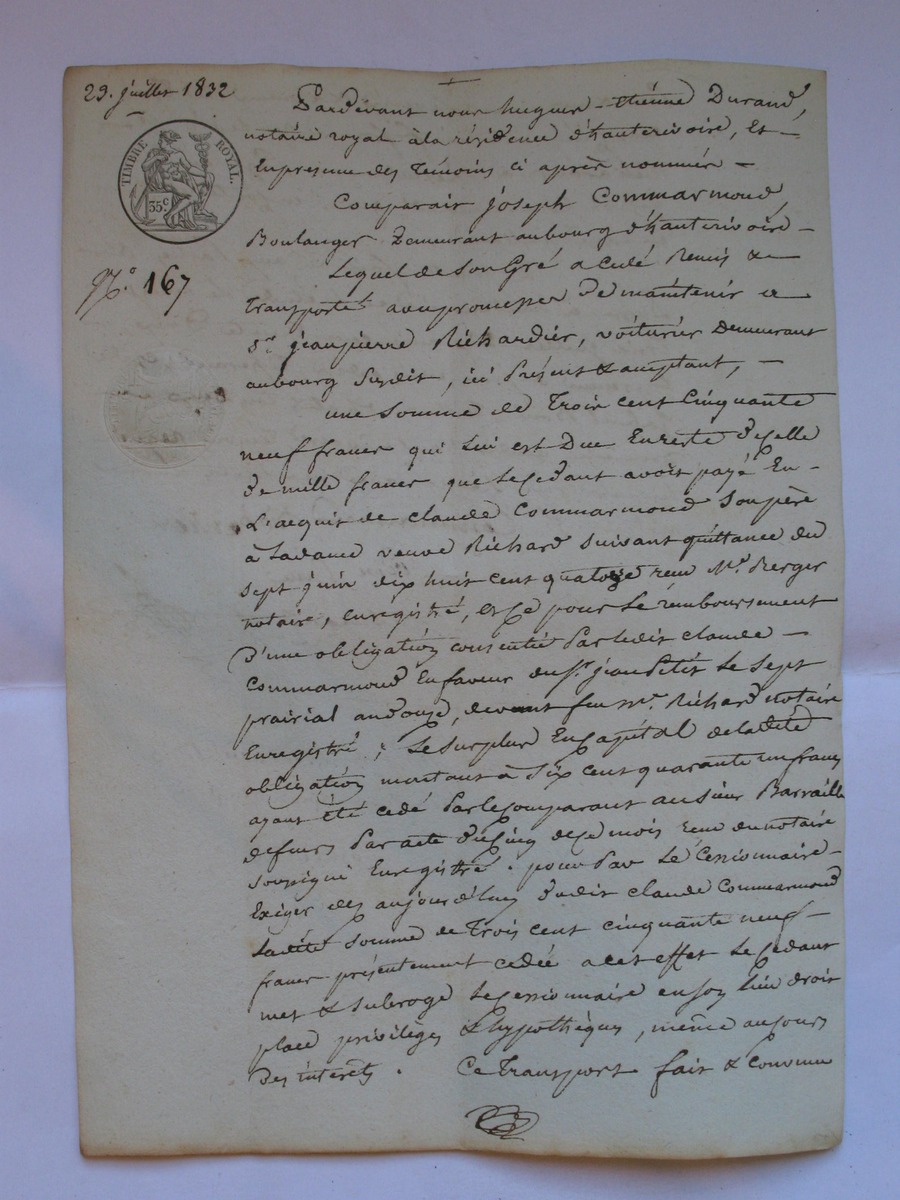 29. juillet 1832
TIMBRE ROYAL.
35c
N.° 167
Pardevant nous hugues - etienne Durand,
notaire royal à la résidence d'hauterivoire, Et -
En presence des témoins ci après nommés -
Comparait joseph Commarmond,
Boulanger Demeurant au bourg d'hauterivoire -
Lequel de Son Gré a cédé Remis &
transporté avec promesse De maintenir a
Sr. jeanpierre Richardier, voiturier Demeurant
au bourg Susdit, ici Présent & acceptant, -
une Somme de Trois cent Cinquante
neuf francs qui Lui est Due En reste de Celle
de mille francs que Le Cédant avoit payé En -
L'acquit de claude Commarmond Son père
à La dame veuve Richard suivant quittance du
Sept juin dix huit cent quatorze recu Me. Berger
notaire, Enregistré, et Ce pour Le remboursement
d'une obligation consentie Par Ledit claude -
Commarmond En faveur du Sr. jean Petit Le Sept
prairial an douze, devant feu Me. Richard notaire
Enregistré ; Le Surplus En Capital de Ladite
obligation montant à Six cent quarante un francs
ayant été cédé Par Le Comparant au Sieur Barraille
de feurs Par acte du Cinq de Ce mois recu du notaire
Soussigné Enregistré . pour Par Le Cessionnaire -
Exiger dès aujourd'huy dudit claude Commarmond
Ladite Somme de Trois cent cinquante neuf -
francs présentement cédée a cet effet Le Cédant
met & Subroge Le Cessionnaire en Son Lieu droit
place privilèges & hypothèques, même au cours
Des interets . Ce Transport fait & convenu